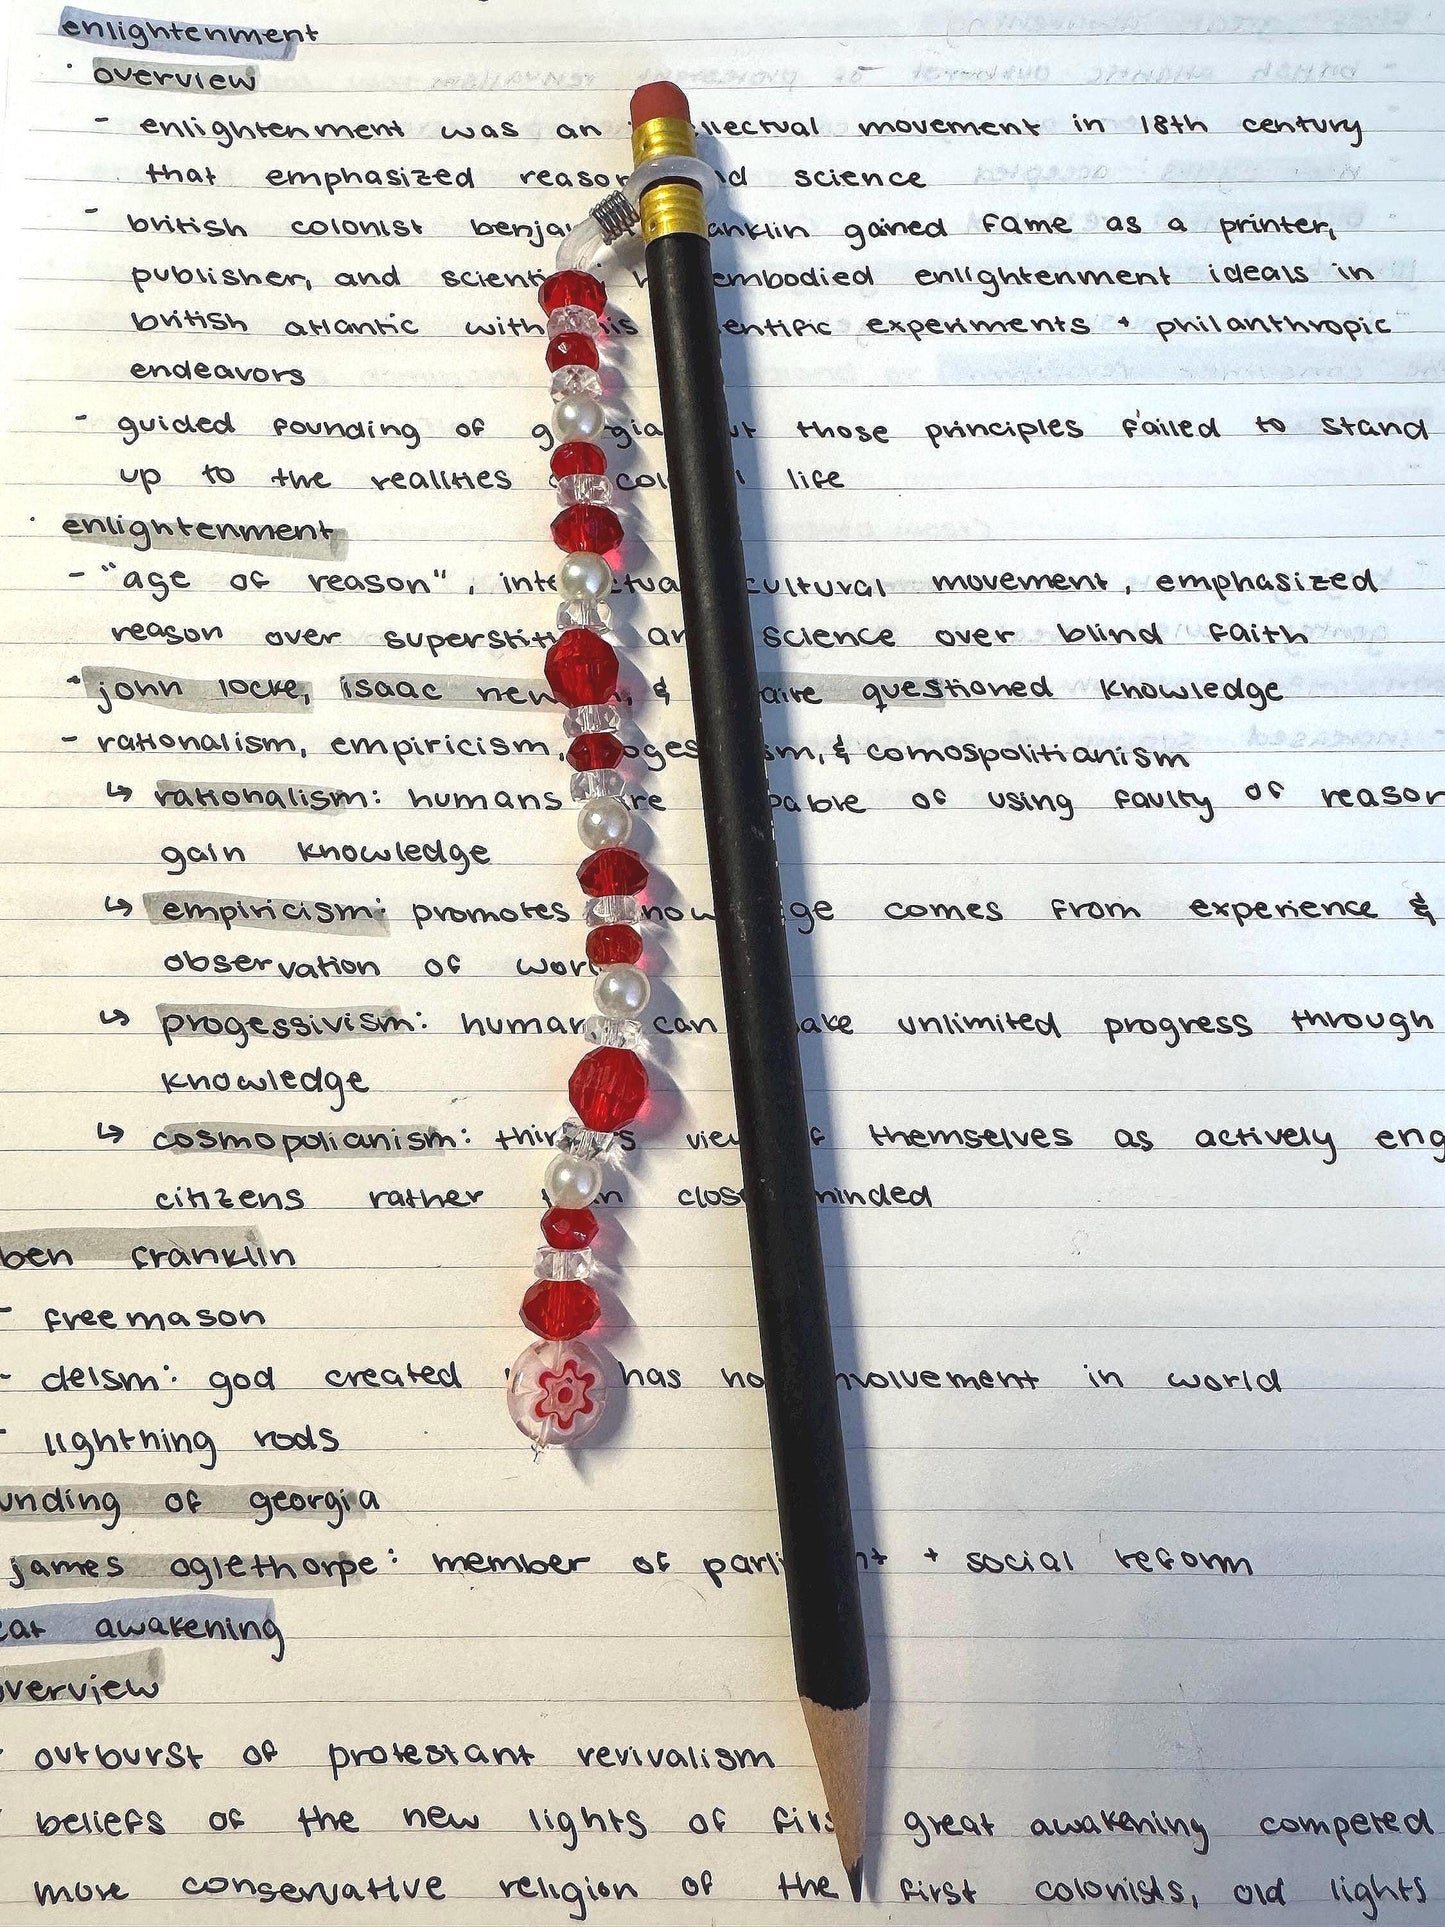 enlightenment
· overview
- enlightenment was an llectual movement in 18th century
that emphasized reason nd science
- british colonist benja anklin gained fame as a printer,
publisher, and scienti embodied enlightenment ideals in
british atlantic with his entific experiments + philanthropic
endeavors
- guided founding of g gia ut those principles failed to stand
up to the realities col l life
· enlightenment
- "age of reason", inte ctua cultural movement, emphasized
reason over superstiti an science over blind faith
- john locke, isaac new n, & aire questioned knowledge
- rationalism, empiricism, oges sm, & comospolitianism
↳ rationalism: humans are pable of using faulty of reason
gain knowledge
↳ empiricism: promotes now ge comes from experience &
observation of worl
↳ progessivism: human can ake unlimited progress through
knowledge
↳ cosmopolianism: thin s view f themselves as actively eng
citizens rather n close minded
ben franklin
- freemason
- deism: god created has no nvolvement in world
- lightning rods
unding of georgia
james oglethorpe: member of parli nt + social reform
eat awakening
overview
- outburst of protestant revivalism
- beliefs of the new lights of firs great awakening competed
more conservative religion of the first colonists, old lights